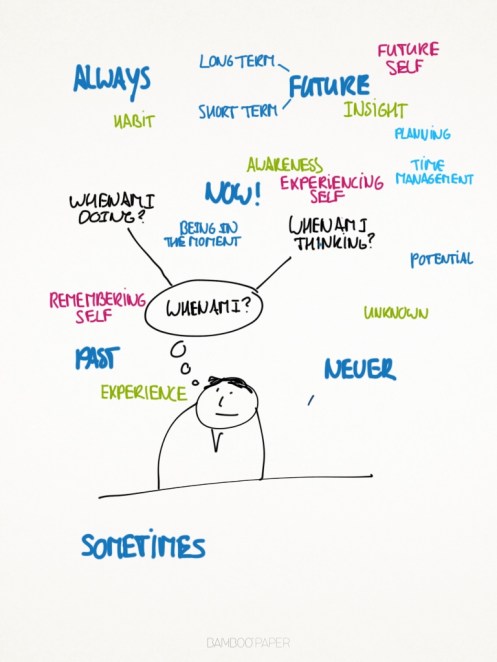 ALWAYS
HABIT
LONG TERM
SHORT TERM
FUTURE
FUTURE
SELF
INSIGHT
PLANNING
TIME
MANAGEMENT
AWARENESS
EXPERIENCING
SELF
NOW!
BEING IN
THE MOMENT
WHEN AM I
DOING?
WHEN AM I
THINKING?
POTENTIAL
REMEMBERING
SELF
WHEN AM I?
UNKNOWN
PAST
NEVER
EXPERIENCE
SOMETIMES
BAMBOO PAPER